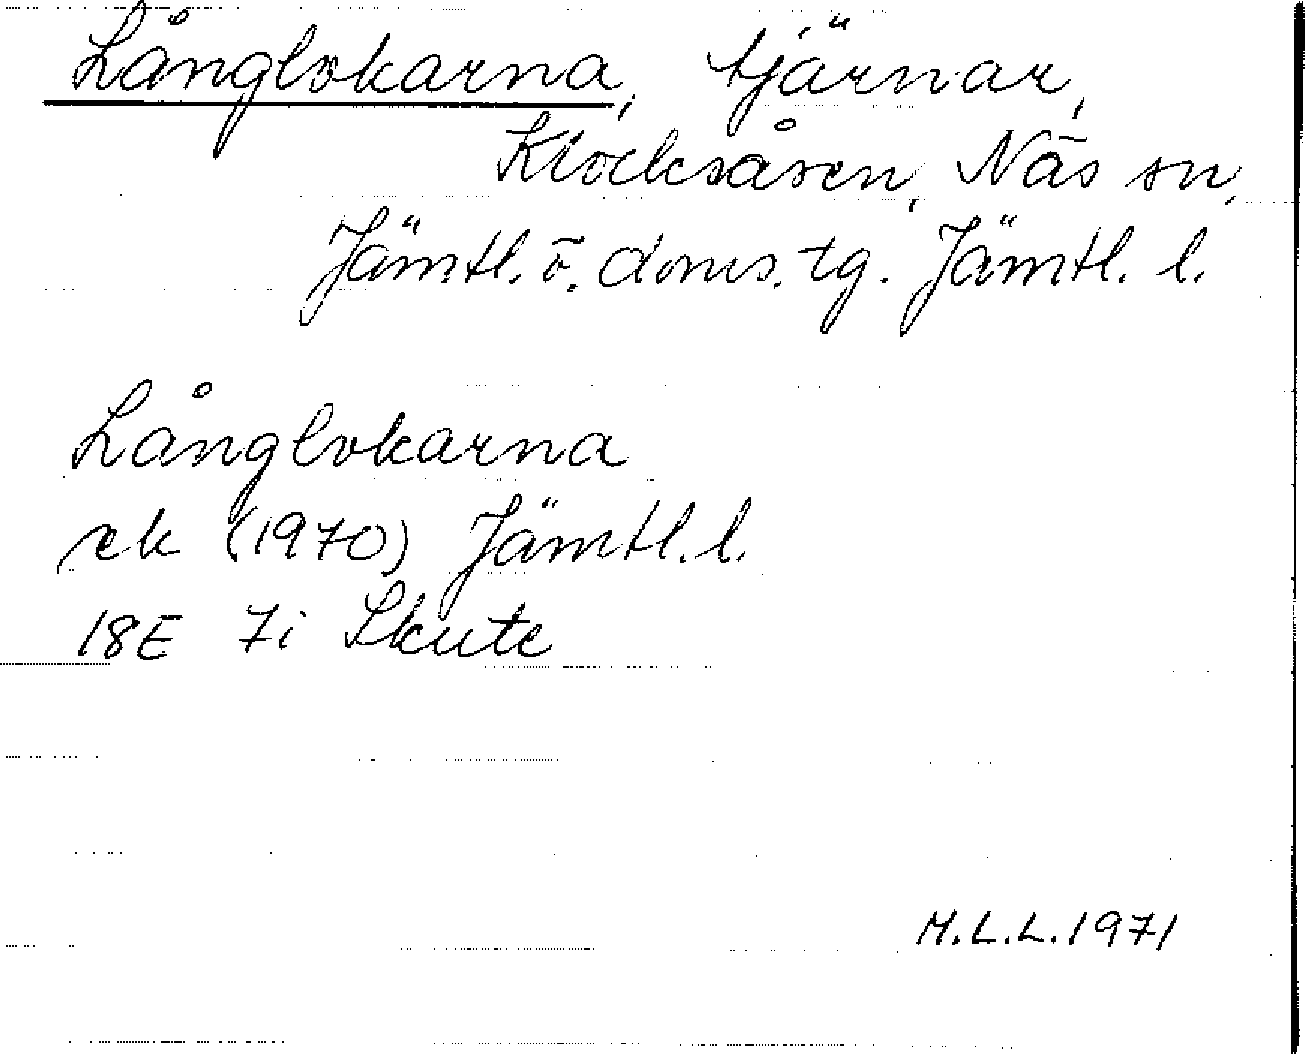 Långlokarna, tjärnar,
Klocksåsen, Näs sn,
Jämtl. ö. doms. tg. Jämtl. l.
Långlokarna
ek (1970) Jämtl. l.
18E 7i Skute
M.L.L. 1971